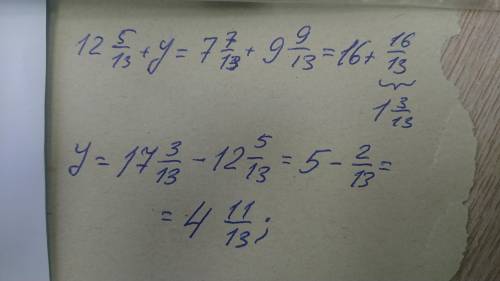 12 5/13 + y = 7 7/13 + 9 9/13 = 16 + 16/13
1 3/13
y = 17 3/13 - 12 5/13 = 5 - 2/13 =
= 4 11/13;